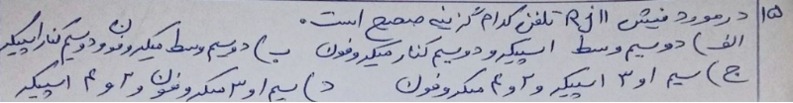 ۱۵) در مورد فیش Rj11 تلفن کدام گزینه صحیح است.
الف) دو سیم وسط اسپیکر و دو سیم کنار میکروفون ب) دو سیم وسط میکروفون و دو سیم کنار اسپیکر
ج) سیم ۱ و ۳ اسپیکر و ۲ و ۴ میکروفون د) سیم ۱ و ۳ میکروفون و ۲ و ۴ اسپیکر